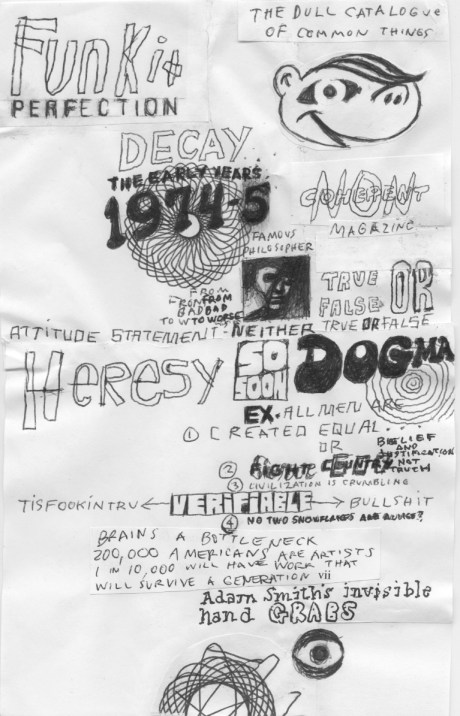 FUNKit
PERFECTION
THE DULL CATALOGUE
OF COMMON THINGS
DECAY
THE EARLY YEARS
1974-5
COHERENT
NON
MAGAZINE
FAMOUS
PHILOSOPHER
TRUE
FALSE OR
FROM
FROM
BAD BAD
TO W TO WORSE
ATTITUDE STATEMENT - NEITHER TRUE OR FALSE
HERESY
SO
SOON
DOGMA
EX. ALL MEN ARE
① CREATED EQUAL
OR
BELIEF
AND
JUSTIFICATION
NOT
TRUTH
②
③ CIVILIZATION IS CRUMBLING
TISFOOKINTRU ← VERIFIABLE → BULLSHIT
④ NO TWO SNOWFLAKES ARE ALIKE?
BRAINS A BOTTLENECK
200,000 AMERICANS ARE ARTISTS
1 IN 10,000 WILL HAVE WORK THAT
WILL SURVIVE A GENERATION vii
Adam Smith's invisible
hand GRABS